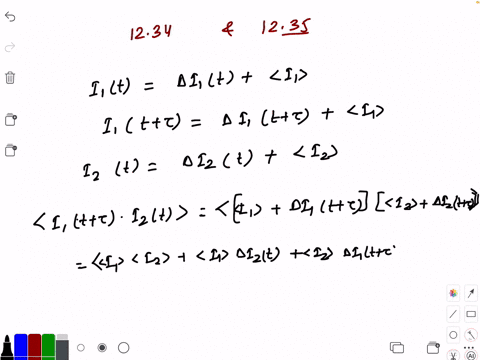 12.34 & 12.35
I₁(t) = ΔI₁(t) + <I₁>
I₁(t+τ) = ΔI₁(t+τ) + <I₁>
I₂(t) = ΔI₂(t) + <I₂>
<I₁(t+τ)·I₂(t)> = <[<I₁> + ΔI₁(t+τ)] [<I₂> + ΔI₂(t+τ)]
= <<I₁><I₂> + <I₁> ΔI₂(t) + <I₂> ΔI₁(t+τ